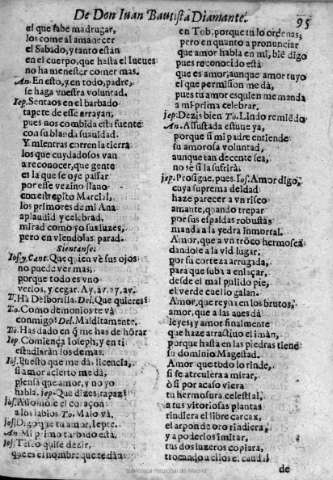 De Don Iuan Bautista Diamante. 95
el que sabe madrugar,
los come al amanecer
el Sabado, y tanto están
en el cuerpo, que hasta el lueues
no ha menester comer mas.
An. En esto, y en todo, padre,
se haga vuestra voluntad.
Iep. Sentaos en el barbado
tapete de esse arrayan,
pues nos combida esta fuente
con su blanda suauidad.
Y mientras corren la tierra
los que cuydadosos van
a reconocer, que gente
es la que se oye passar
por esse vezino llano
con estrepito Marcial,
los primores de mi Ana
aplaudid y celebrad,
mirad como yo sus luzes,
pero en viendolas parad.
Sientanse.
Ios. y Cant. Que quien vè sus ojos
no puede ver mas,
porque todo es vno
verlos, y cegar. Ay, ay, ay, ay.
To. Ha Delborilla. Del. Que quieres
To. Como demonios te và
conmigo? Del. Malditamente.
To. Has dado en q̃ me has de honrar
Iep. Comiença Ioseph, y en ti
estudiaràn los demas.
Ios. Puesto que me dà licencia,
si a amor acierto me dà,
piensa que amor, y no yo
habla. Iep. Que dizes, rapaz?
Ios. Assomose el coraçon
a los labios To. Malo và.
Ios. Digo que tu amor, Iepte.
An. Mi primo turbado està.
Iep. Tu no quise dezir,
que es el nombre que te dàn
en Tob, porque tu lo ordenas,
pero en quanto a pronunciar
que amor habla en mi, biẽ digo
pues reconocido està
que es amor, aunque amor tuyo
el que permission me dà,
pues tu amor es quien me manda
a mi prima celebrar.
Iep. Dezis bien To. Lindo remiẽdo
An. Assustada estuue ya,
porque si mi padre entiende
su amorosa voluntad,
aunque tan decente sea,
no sè si la sufrirà.
Iep. Prosigue, pues. Ios. Amor digo,
cuya suprema deidad
haze parecer a vn risco
amante, quando trepar
por sus espaldas robustas
manda a la yedra inmortal.
Amor, que a vn tronco hermosea
dandole a la vid lugar,
por su corteza arrugada,
para que suba a enlaçar,
desde el mal pulido pie,
el verde cuello galan.
Amor, que reyna en los brutos,
amor, que a las aues dà
leyes, y amor finalmente
que haze atractiuo el iman,
porque hasta en las piedras tiene
su dominio Magestad.
Amor que todo lo rinde,
si se atreuiera a mirar,
ò si por acaso viera
tu hermosura celestial,
a tus vitoriosas plantas
rindiera el libre carcax,
el arpon de oro rindiera,
y a poderlos imitar,
tus dos luzeros copiara,
trocando a ellos e caudal
de